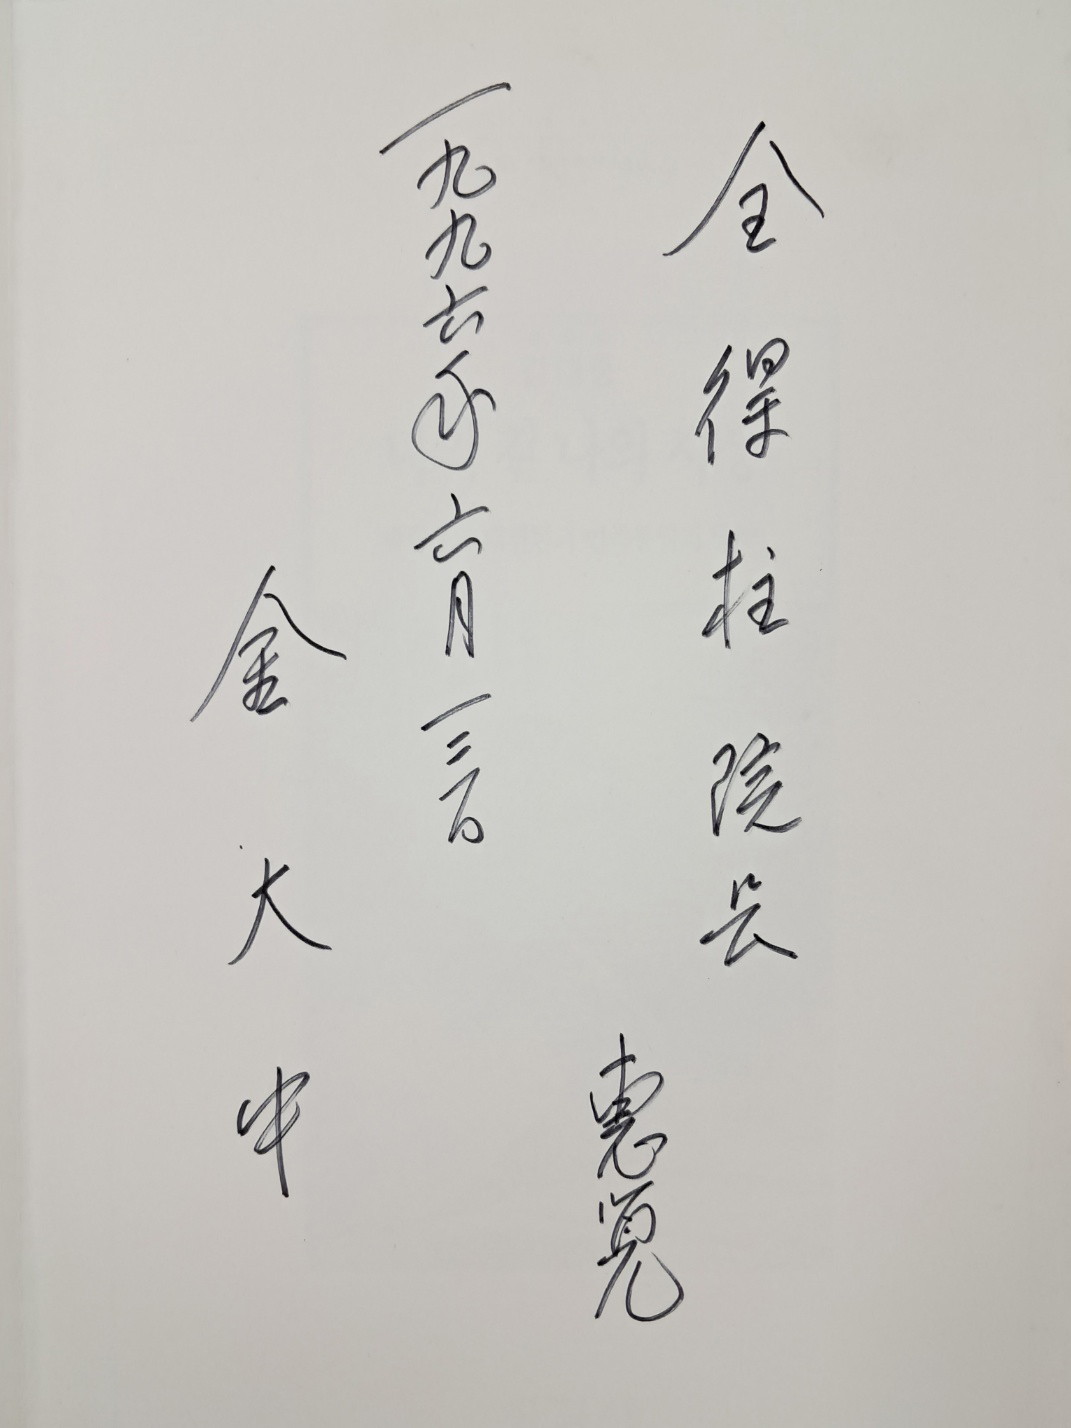 全得柱院長
惠覽
一九九六年六月一三日
金大中